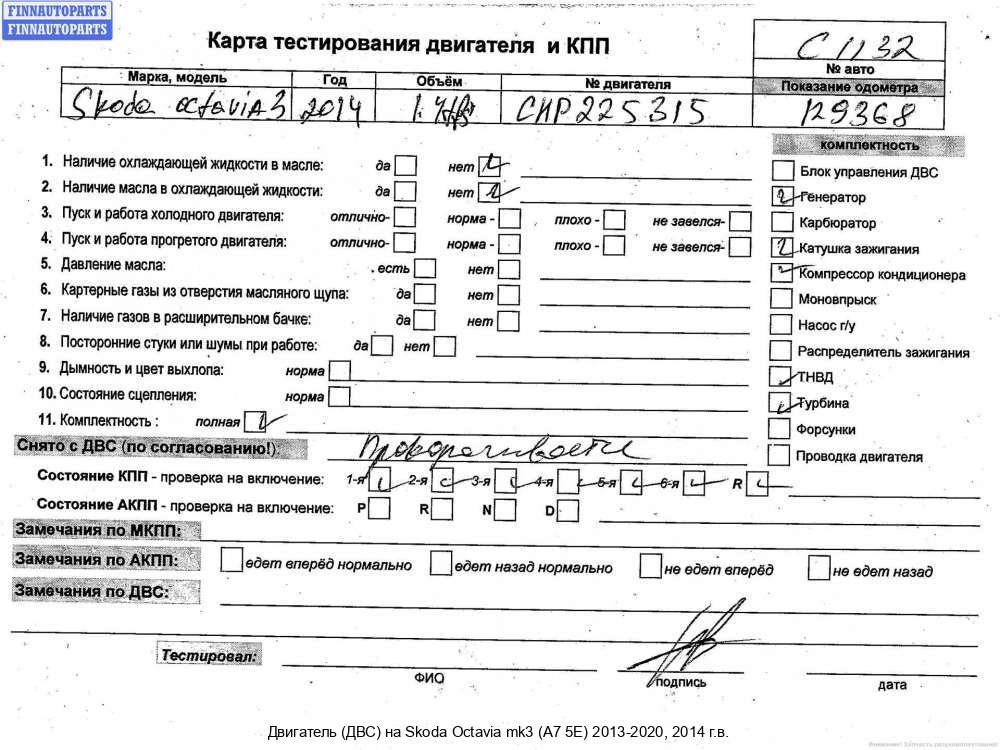 FINNAUTOPARTS
FINNAUTOPARTS
Карта тестирования двигателя и КПП
C 1132
№ авто
Марка, модель Год Объём № двигателя Показание одометра
Skoda octavia 3 2014 CHP225315 129368
комплектность
1. Наличие охлаждающей жидкости в масле: да нет
Блок управления ДВС
2. Наличие масла в охлаждающей жидкости: да нет
Генератор
3. Пуск и работа холодного двигателя: отлично- норма - плохо - не завелся-
Карбюратор
4. Пуск и работа прогретого двигателя: отлично- норма - плохо - не завелся-
Катушка зажигания
5. Давление масла: есть нет
Компрессор кондиционера
6. Картерные газы из отверстия масляного щупа: да нет
Моновпрыск
7. Наличие газов в расширительном бачке: да нет
Насос г/у
8. Посторонние стуки или шумы при работе: да нет
Распределитель зажигания
9. Дымность и цвет выхлопа: норма
ТНВД
10. Состояние сцепления: норма
Турбина
11. Комплектность : полная
Форсунки
Снято с ДВС (по согласованию!):
Проводка двигателя
Состояние КПП - проверка на включение: 1-я 2-я 3-я 4-я 5-я 6-я R
Состояние АКПП - проверка на включение: P R N D
Замечания по МКПП:
Замечания по АКПП: едет вперёд нормально едет назад нормально не едет вперёд не едет назад
Замечания по ДВС:
Тестировал:
ФИО подпись дата
Двигатель (ДВС) на Skoda Octavia mk3 (A7 5E) 2013-2020, 2014 г.в.